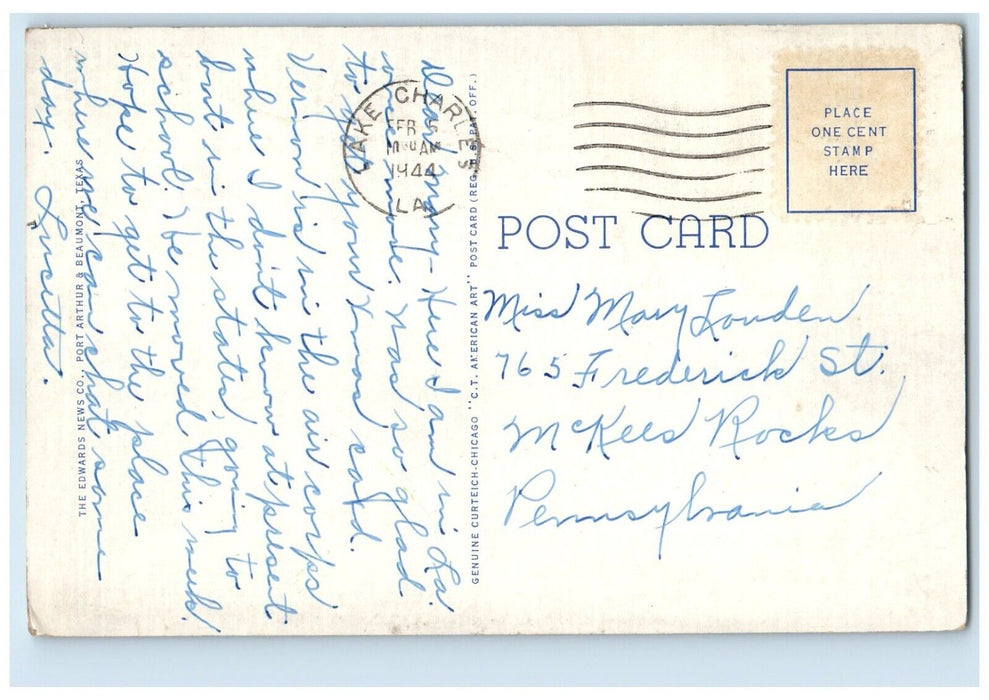 Dear Mary - Here I am in La
once more. Was so glad
to get your Xmas card.
Vernon is in the air corps
where I don't know at present
but in the states, going to
school. I be moved this week.
Hope to get to the place
where we can chat some
day. Lucetta.
THE EDWARDS NEWS CO., PORT ARTHUR & BEAUMONT, TEXAS
GENUINE CURTEICH-CHICAGO "C.T. AMERICAN ART" POST CARD (REG. U.S. PAT. OFF.)
LAKE CHARLES
FEB 5
AM
1944
LA
PLACE
ONE CENT
STAMP
HERE
POST CARD
Miss Mary Louden
765 Frederick St.
McKees Rocks
Pennsylvania